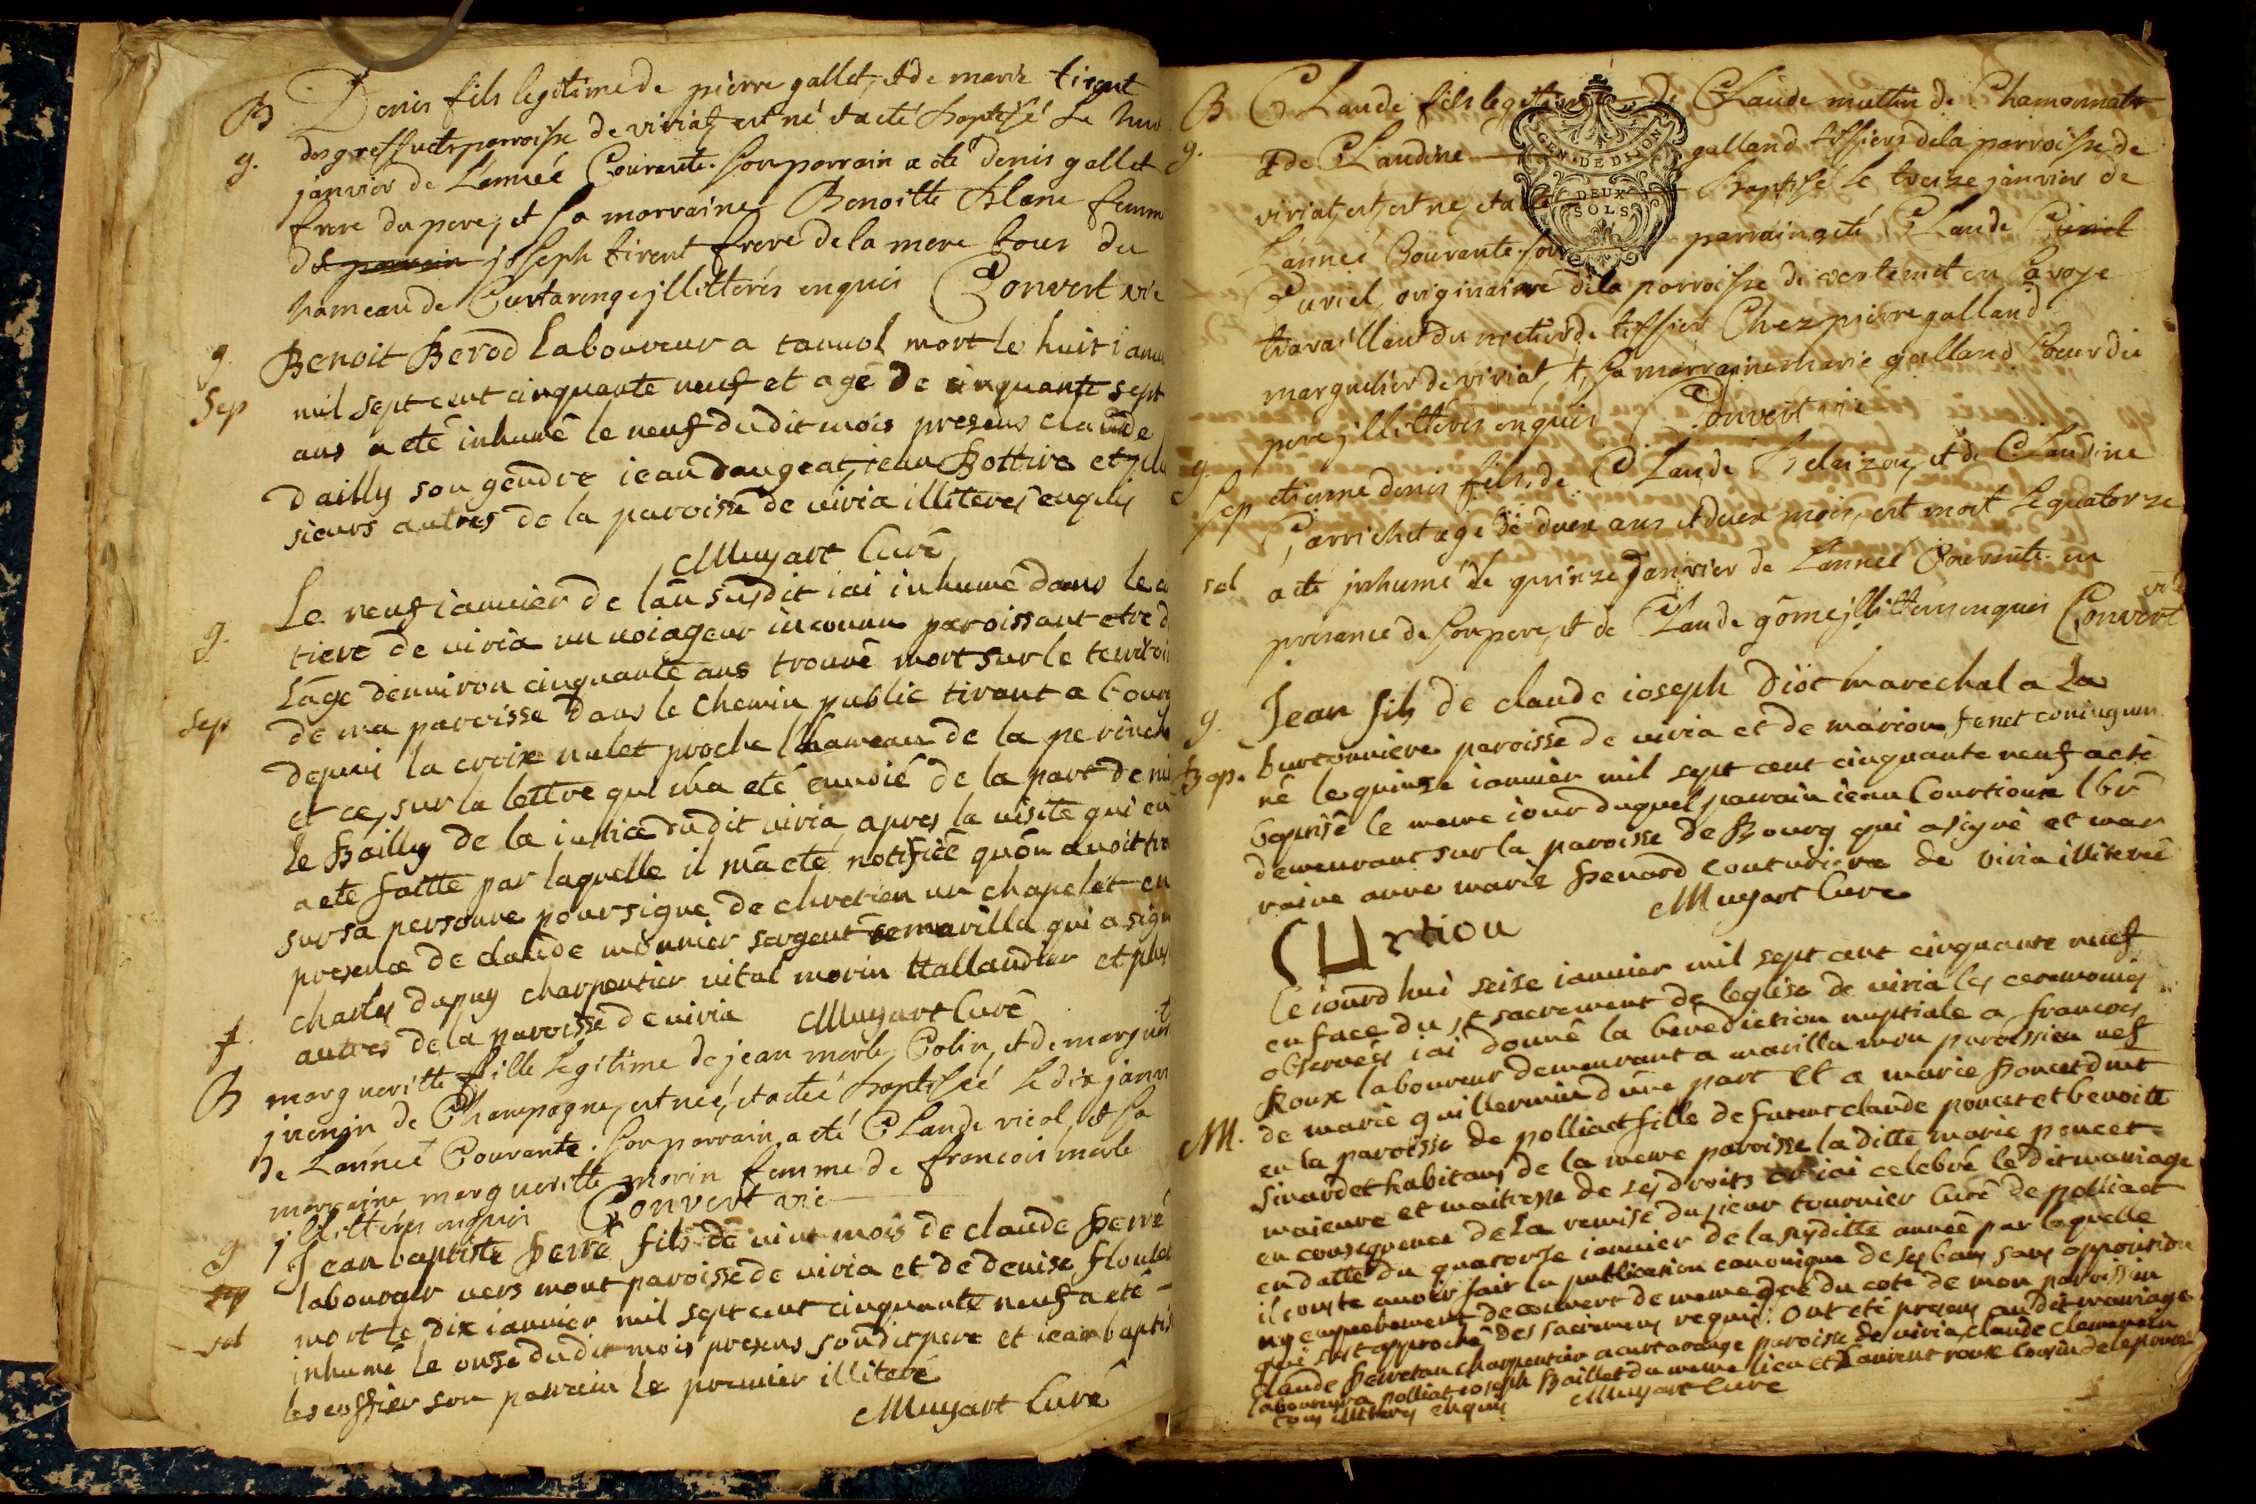 B Denis fils legitime de pierre gallet, et de marie tirent
g. des greffuets parroisse de viriat, est né et a eté baptisé Le huit
janvier de L'année Courante. son parrain a eté denis gallet
frere du pere, et sa marraine Benoitte Blanc femme
de parrain joseph tirent frere de la mere tous du
hameau de Curtarenge jllitterés enquis Convert vic
g. Benoit Berod laboureur a tannol mort le huit ianv
Sep mil sept cent cinquante neuf et agé de cinquante sept
ans a eté inhumé le neuf dudit mois presens claude
dailly son gendre iean dangeat, jean Bottire et plu
sieurs autres de la paroisse de viria illiteres enquis
Muyart Curé
g. Le neuf ianvier de lan susdit iai inhumé dans le ci
tiere de viria un voiageur inconnu paroissant etre d
Lage denviron cinquante ans trouvé mort sur le territoi
sep de ma paroisse dans le chemin public tirant a bourg
depuis la croix mulet proche lhameau de la perinche
et ce, sur la lettre qui ma eté envoié de la part de m
le Bailly de la iustice dudit viria apres la visite qui en
a eté faitte par laquelle il ma eté notifiée quon avoit tro
sur sa personne pour signe de chretien un chapelet en
presence de claude monnier sergent de marilla qui a sign
charles dupuy charpentier vital morin ttallandier et plus
autres de la paroisse de viria Muyart Curé
f.
B margueritte fille legitime de jean marle Colin, et de marguerit
juenin de Champagne, est née, et a eteé baptiseé Le dix janv
de L'anneé Courante. son parrain a eté CLaude viol, et sa
marraine margueritte morin femme de francois marle
jllitterés enquis Convert vic
g Jean baptiste Herré fils de vint mois de claude Herré
sep laboureur vers mont paroisse de viria et de denise floulet
sol mort le dix ianvier mil sept cent cinquante neuf a eté
inhumé le onse dudit mois presens son dit pere et iean baptis
lescoffier son parrain le premier illiteré
Muyart Curé
B CLaude fils legitime de CLaude mullin de Chamonnat
g. et de CLaudine galland tissiers de la parroisse de
viriat, est né, et a eté baptisé Le treize janvier de
L'anneé Courante. son parrain a eté CLaude Curiel
Curiel, originaire de la parroisse de en Savoye
travaillant du metier de tissier Chez pierre galland
marguelier de viriat, et sa marraine marie galland soeur du
pere jllitterés enquis Convert vic
g. etienne denis fils de CLaude Belaizon, et de CLaudine
Sep Carrichet agé de deux ans et deux mois, est mort Le quatorze
sol a eté jnhumé Le quinze janvier de L'anneé Courante. en
presence de son pere, et de CLaude gome jllitterés enquis Convert vic
g. Jean fils de claude ioseph diot marechal a La
burtonniere paroisse de viria et de marion fenet coniugum
Bap. né le quinze ianvier mil sept cent cinquante neuf a eté
baptisé le meme iour duquel parrain iean Courtioux lbr
demeurant sur la paroisse de Bourg qui a signé et mar
raine anne marie Henard couturiere de viria illitereé
Muyart Cure
CUrtiou
Ce iourd hui seise ianvier mil sept cent cinquante neuf
en face du st sacrement de leglise de viria les ceremonies
observées iai donné la benediction nuptiale a francois
Roux laboureur demeurant a marilla mon paroissien nef
M. de marie guillermin dune part et a marie Poncet dmt
en la paroisse de polliact fille de furent claude poncet et benoitte
sivardet habitans de la meme paroisse la ditte marie poncet
maieure et maitresse de ses droits et iai celebré le dit mariage
en consequence de La remise du sieur tournier Curé de polliact
en datte du quatorse ianvier de la susditte année par laquelle
il conste avoir fait la publication canonique de ses bans sans opposition
ny empechement decouvert de meme que du coté de mon paroissien
qui sest approché des sacremens requis: Ont eté presens au dit mariage
claude Perretan charpentier a curtarange paroisse de viria, claude clemencin
laboureur a polliat ioseph Baillet du meme lieu et Laurent roux cousin de lepoux
tous illiteres enquis Muyart Curé
GEN. DE DIJON
DEUX
SOLS